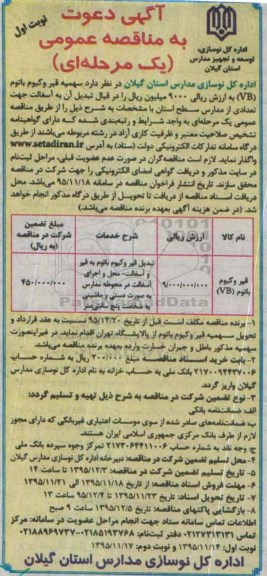 آگهی دعوت
به مناقصه عمومی
(یک مرحله‌ای)
نوبت اول
اداره کل نوسازی،
توسعه و تجهیز مدارس
استان گیلان
اداره کل نوسازی مدارس استان گیلان در نظر دارد سهمیه قیر وکیوم باتوم
(VB) به ارزش ریالی ۹۰۰۰ میلیون ریال را در قبال تبدیل آن به آسفالت جهت
تعدادی از مدارس سطح استان با مشخصات به شرح ذیل را از طریق مناقصه
عمومی یک مرحله‌ای به واجد شرایط و رتبه‌بندی شده که دارای گواهینامه
تشخیص صلاحیت معتبر و ظرفیت کاری آزاد در رشته مربوطه می‌باشند از طریق
درگاه سامانه تدارکات الکترونیکی دولت (ستاد) به آدرس www.setadiran.ir
واگذار نماید. لازم است مناقصه‌گران در صورت عدم عضویت قبلی، مراحل ثبت‌نام
در سایت مذکور و دریافت گواهی امضای الکترونیکی را جهت شرکت در مناقصه
محقق سازند. تاریخ انتشار فراخوان مناقصه در سامانه ۹۵/۱۱/۱۸ می‌باشد. محل
دریافت اسناد مناقصه از دریافت تا تحویل از طریق درگاه مذکور انجام خواهد
شد. (در ضمن هزینه آگهی بعهده برنده مناقصه می‌باشد.)
نام کالا
ارزش ریالی
شرح خدمات
مبلغ تضمین
شرکت در مناقصه
(به ریال)
قیر وکیوم
باتوم (VB)
۹/۰۰۰/۰۰۰/۰۰۰
تبدیل قیر وکیوم باتوم به قیر
و آسفالت، حمل و اجرای
آسفالت در محوطه مدارس
به صورت دستی و ماشینی
به ضخامت پنج سانتی‌متر
۴۵۰/۰۰۰/۰۰۰
۱- برنده مناقصه مکلف است قبل از تاریخ ۹۵/۱۲/۲۰ نسبت به عقد قرارداد و
تحویل سهمیه قیر وکیوم باتوم از پالایشگاه تهران اقدام نماید، در غیر اینصورت
سهمیه مذکور باطل و جبران خسارت وارده بعهده برنده مناقصه می‌باشد.
۲- بابت خرید اسناد مناقصه مبلغ ۲۰۰/۰۰۰ ریال به شماره حساب
بانک ملی به حساب خزانه به نام اداره کل نوسازی مدارس
گیلان واریز گردد.
۳- نوع تضمین شرکت در مناقصه به شرح ذیل تهیه و تسلیم گردد:
الف ضمانت‌نامه بانکی
ب ضمانت‌نامه‌های صادر شده از سوی موسسات اعتباری غیربانکی که دارای مجوز
لازم از طرف بانک مرکزی جمهوری اسلامی ایران هستند.
ج وجه نقد به شماره حساب تمرکز وجوه سپرده بانک ملی
۴- محل تسلیم تضمین شرکت در مناقصه: دبیرخانه اداره کل نوسازی مدارس گیلان
۵- تاریخ تسلیم تضمین شرکت در مناقصه: ۱۳۹۵/۱۲/۳ تا ساعت ۱۴
۶- مهلت فروش اسناد مناقصه: از تاریخ ۱۳۹۵/۱۱/۱۸ الی ۱۳۹۵/۱۱/۲۱
۷- تاریخ تحویل اسناد: تاریخ ۱۳۹۵/۱۱/۲۳ تا ۹۵/۱۲/۴ ساعت ۱۳
۸- بازگشایی پاکتهای مناقصه: تاریخ ۱۳۹۵/۱۲/۵ ساعت ۹ صبح
اطلاعات تماس سامانه ستاد جهت انجام مراحل عضویت در سامانه: مرکز
تماس ۰۲۱۲۷۳۱۳۱۳۱ دفتر ثبت‌نام: ۰۲۱۸۵۱۹۳۷۶۸-۰۲۱۸۸۹۶۹۷۳۷
نوبت اول: ۱۳۹۵/۱۱/۱۴ و نوبت دوم: ۱۳۹۵/۱۱/۱۷
اداره کل نوسازی مدارس استان گیلان